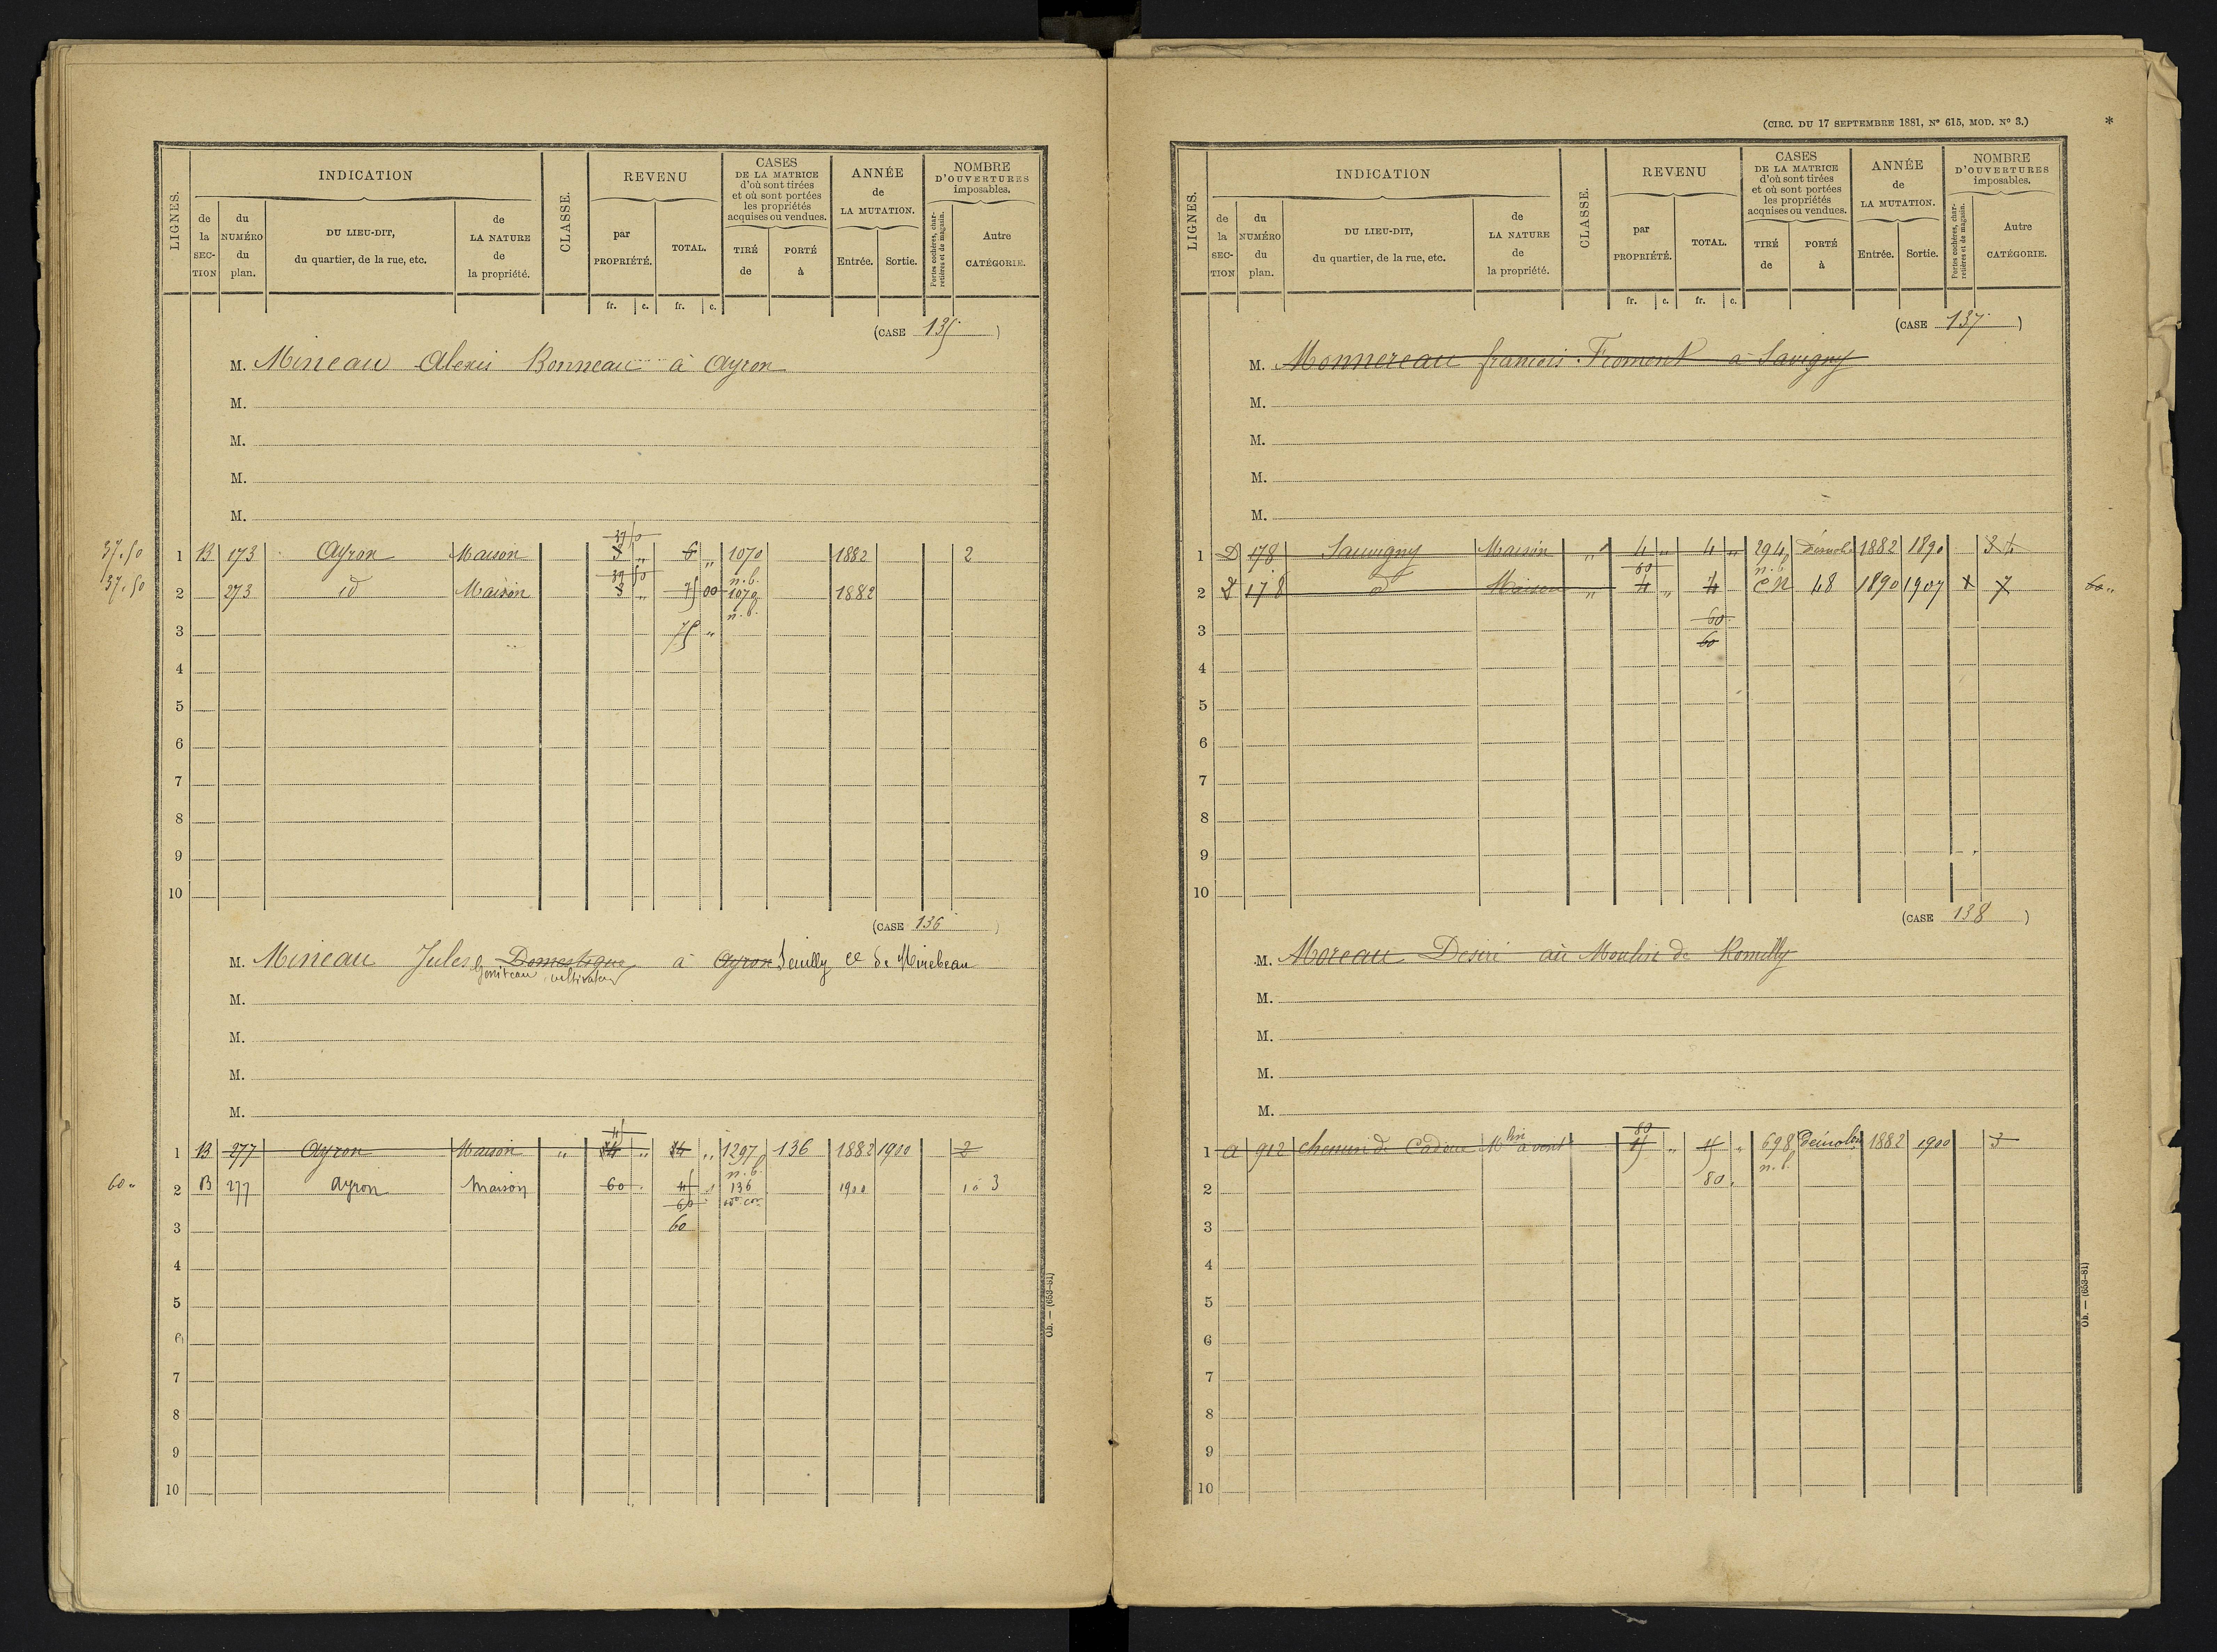 (CIRC. DU 17 SEPTEMBRE 1881, N° 615, MOD. N° 3.) *
LIGNES.
INDICATION
de la SECTION
du NUMÉRO du plan.
DU LIEU-DIT, du quartier, de la rue, etc.
de LA NATURE de la propriété.
CLASSE.
REVENU
par PROPRIÉTÉ.
TOTAL.
CASES DE LA MATRICE d'où sont tirées et où sont portées les propriétés acquises ou vendues.
TIRÉ de
PORTÉ à
ANNÉE de LA MUTATION.
Entrée.
Sortie.
NOMBRE D'OUVERTURES imposables.
Portes cochères, charretières et de magasin.
Autre CATÉGORIE.
fr. c. fr. c.
(CASE 135)
M. Mineau Alexis Bonneau à Ayron
M.
M.
M.
M.
37.50
37.50 1 B 173 Ayron Maison 3 „ 6 „ 1070 1882 2
37 50 n. b.
37.50 2 273 id Maison 3 „ 75 00 1070 1882
n. b.
3 75 „
4
5
6
7
8
9
10
(CASE 136)
M. Mineau Jules Domestique à Ayron Seuilly cne de Mirebeau
cultivateur
M.
M.
M.
M.
1 B 277 Ayron Maison „ „ „ 1297 136 1882 1900 2
n. b.
60 „ 2 B 277 Ayron Maison 60 136 1900 3
60
3 60
4
5
6
7
8
9
10
Ob. — (653-81)
LIGNES.
INDICATION
de la SECTION
du NUMÉRO du plan.
DU LIEU-DIT, du quartier, de la rue, etc.
de LA NATURE de la propriété.
CLASSE.
REVENU
par PROPRIÉTÉ.
TOTAL.
CASES DE LA MATRICE d'où sont tirées et où sont portées les propriétés acquises ou vendues.
TIRÉ de
PORTÉ à
ANNÉE de LA MUTATION.
Entrée.
Sortie.
NOMBRE D'OUVERTURES imposables.
Portes cochères, charretières et de magasin.
Autre CATÉGORIE.
fr. c. fr. c.
(CASE 137)
M. Monnereau francois Froment à Savigny
M.
M.
M.
M.
1 D 178 Sauvigny Maison „ 4 „ 4 „ 294 démolie 1882 1890
60 n. b.
2 D 178 d° Maison „ 4 „ 4 CN 48 1890 1907 1 7 60 „
3 60
60
4
5
6
7
8
9
10
(CASE 138)
M. Moreau Desiré au Moulin de Romilly
M.
M.
M.
M.
80
1 A 912 chemin de Cadoue Mlin à vent 15 „ 15 „ 698 démolie 1882 1900 3
n. b.
2 80
3
4
5
6
7
8
9
10
Ob. — (653-81)